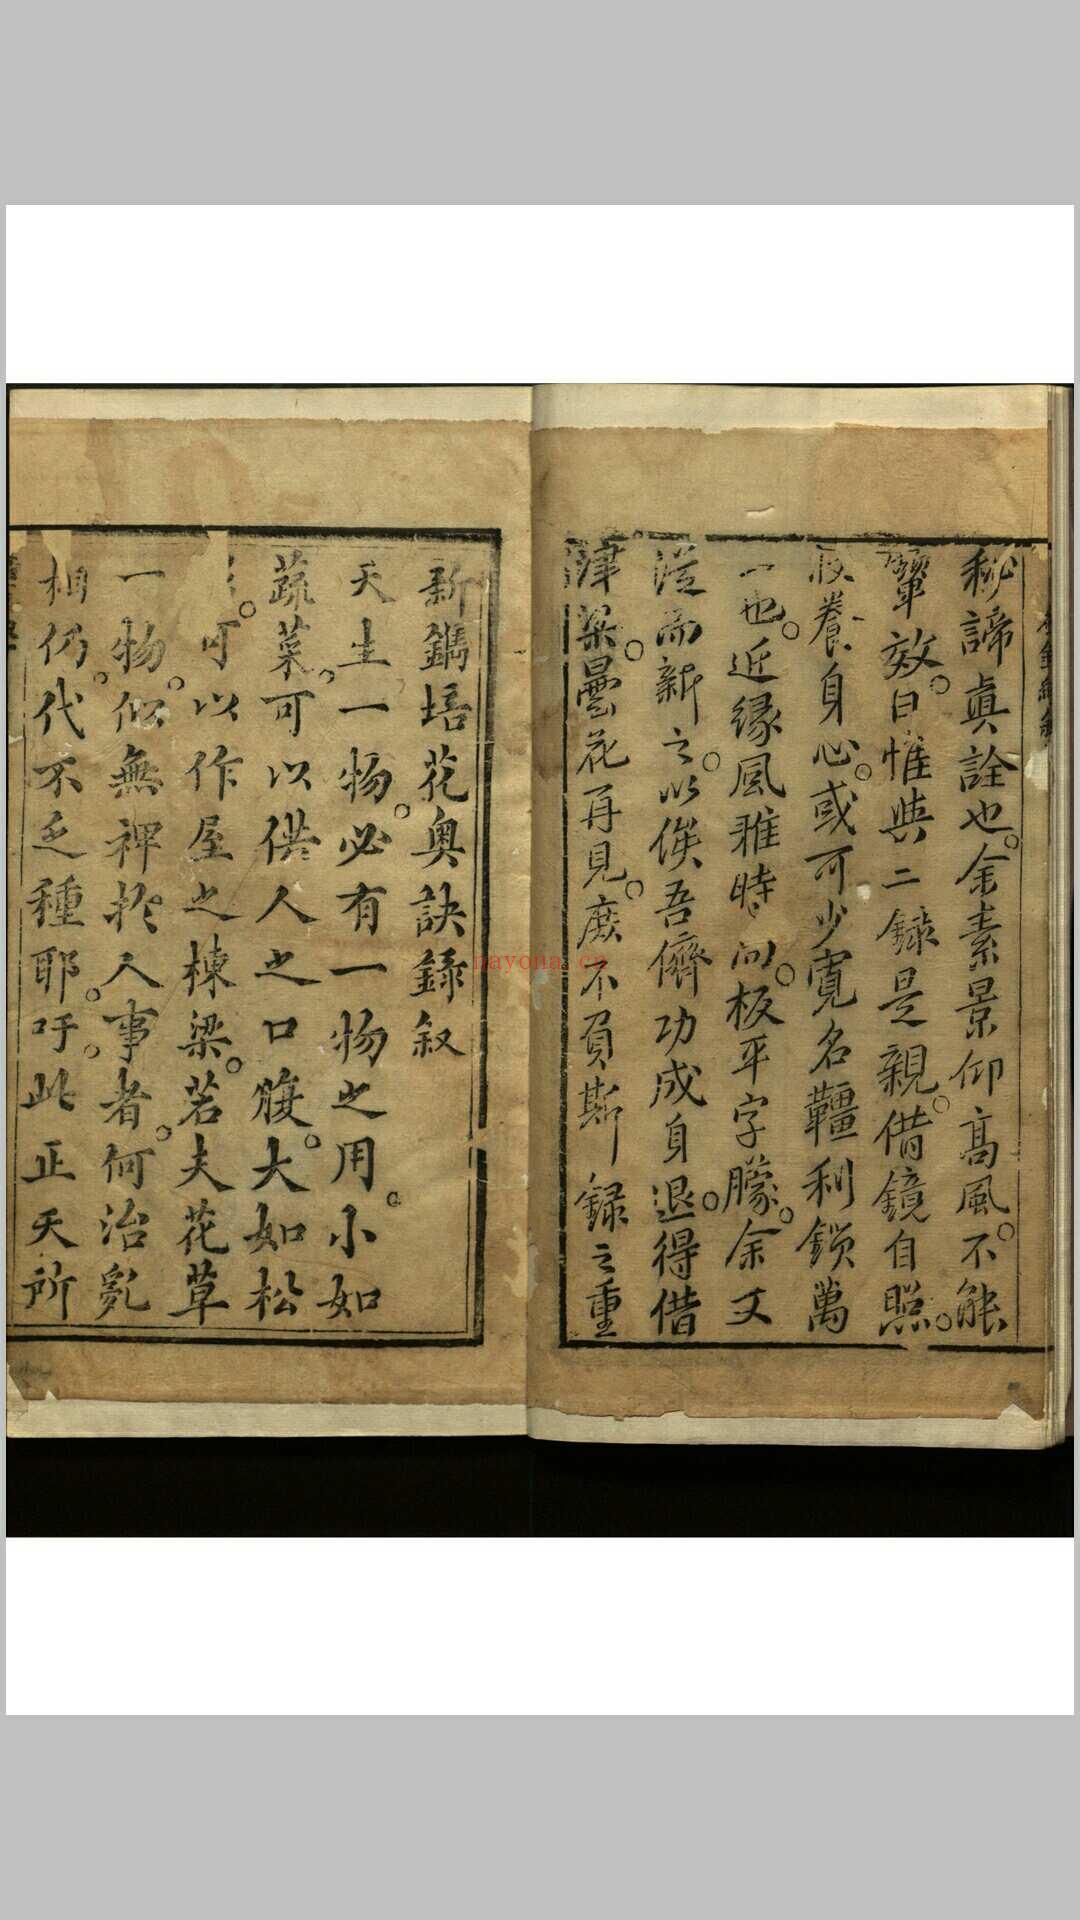 秘諦眞詮也余素景仰高風不能
顰效日惟與二錄是親借鏡自照
養身心或可少寬名韁利鎖萬
一也近緣風雅時向板平字朦余又
從而新之以俟吾儕功成身退得借
津梁曇花再見庶不負斯錄之重
新鐫培花奧訣錄叙
天生一物必有一物之用小如
蔬菜可以供人之口腹大如松
可以作屋之棟梁若夫花草
一物似無裨於人事者何治亂
相仍代不乏種耶吁此正天所
nayona.cn